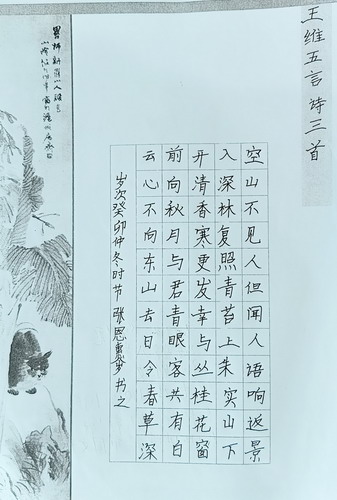 王维五言诗三首
空山不见人但闻人语响返景
入深林复照青苔上朱实山下
开清香寒更发幸与丛桂花窗
前向秋月与君青眼客共有白
云心不向东山去日令春草深
岁次癸卯仲冬时节 张恩书之